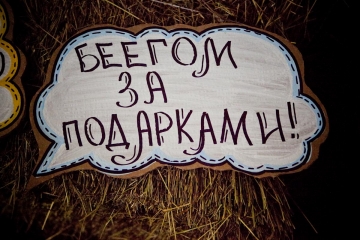 БЕЕГОМ
ЗА
ПОДАРКАМИ!!